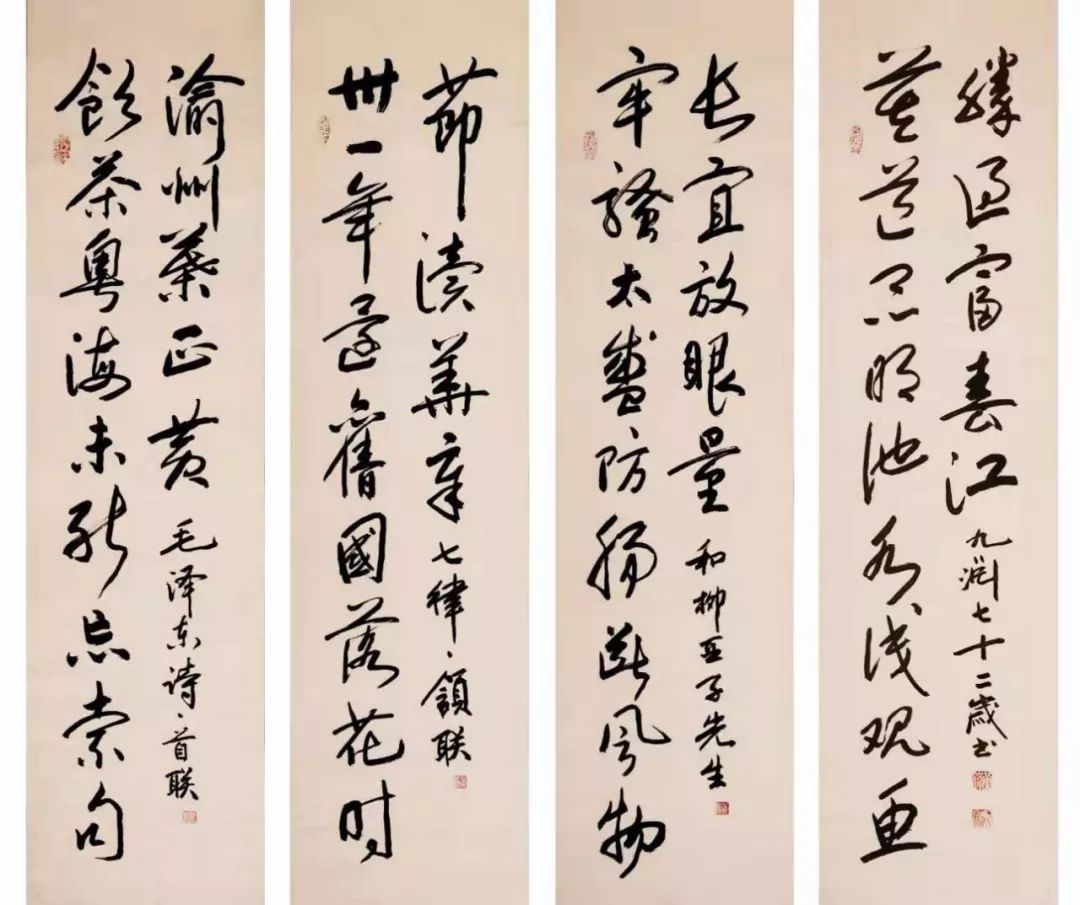 飲茶粤海未能忘索句
渝州葉正黄 毛泽东诗·首联
卅一年還舊國落花时
節读華章 七律·頷联
牢骚太盛防肠断风物
长宜放眼量 和柳亚子先生
莫道昆明池水浅观鱼
勝过富春江 九渊七十二歲书